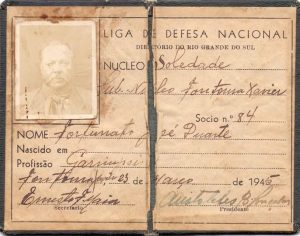 LIGA DE DEFESA NACIONAL
DIRETORIO DO RIO GRANDE DO SUL
NUCLEO Soledade
Sub. Nucleo Fontoura Xavier
Socio n.º 84
NOME Fortunato José Duarte
Nascido em
Profissão
23 de Março de 1945
Ernesto
Secretario
Presidente